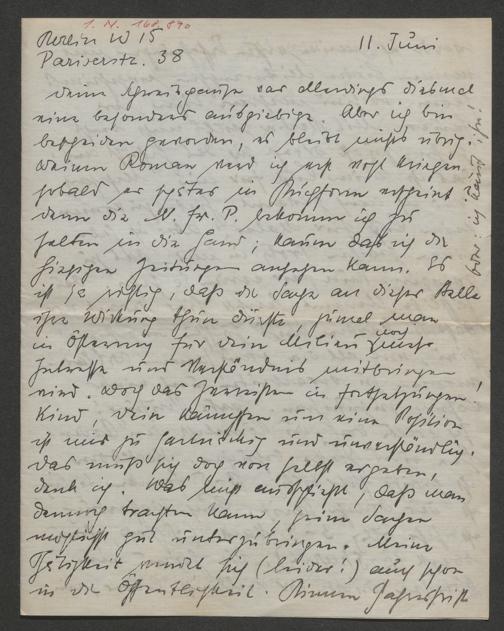 I. N. 168.890
Berlin W 15
Pariserstr. 38
11. Juni
Deine Schreibpause war allerdings diesmal
eine besonders ausgiebige. Aber ich bin
bescheiden geworden, es bleibt nichts übrig.
Deinen Roman werd ich erst recht kriegen
sobald er später in Buchform erscheint
denn die N. fr. P. bekomm ich zu
selten in die Hand; kaum daß ich die
hiesigen Zeitungen ansehen kann. Es
ist ja richtig, daß die Sache an dieser Stelle
ihre Wirkung thun dürfte, zumal man
in Österreich für dein Milieu noch
Interesse und Verständnis mitbringen
wird. Doch das Zerreißen in Fortsetzungen!
Kind, dein Kämpfen um eine Position
ist mir zu hartnäckig und unverständlich.
Das muß sich doch von selbst ergeben,
denk ich. Was nicht ausschließt, daß man
dennoch trachten kann, seine Sachen
möglichst gut unterzubringen. Meine
Thätigkeit wendet sich (leider!) auch schon
in die Öffentlichkeit. Binnen Jahresfrist